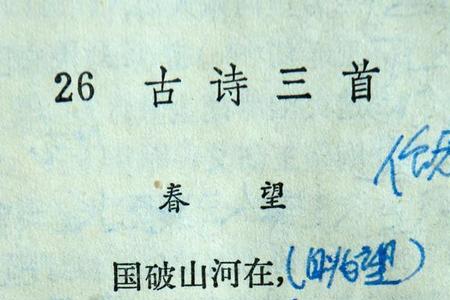 26 古诗三首
春 望
国破山河在,(眺望)